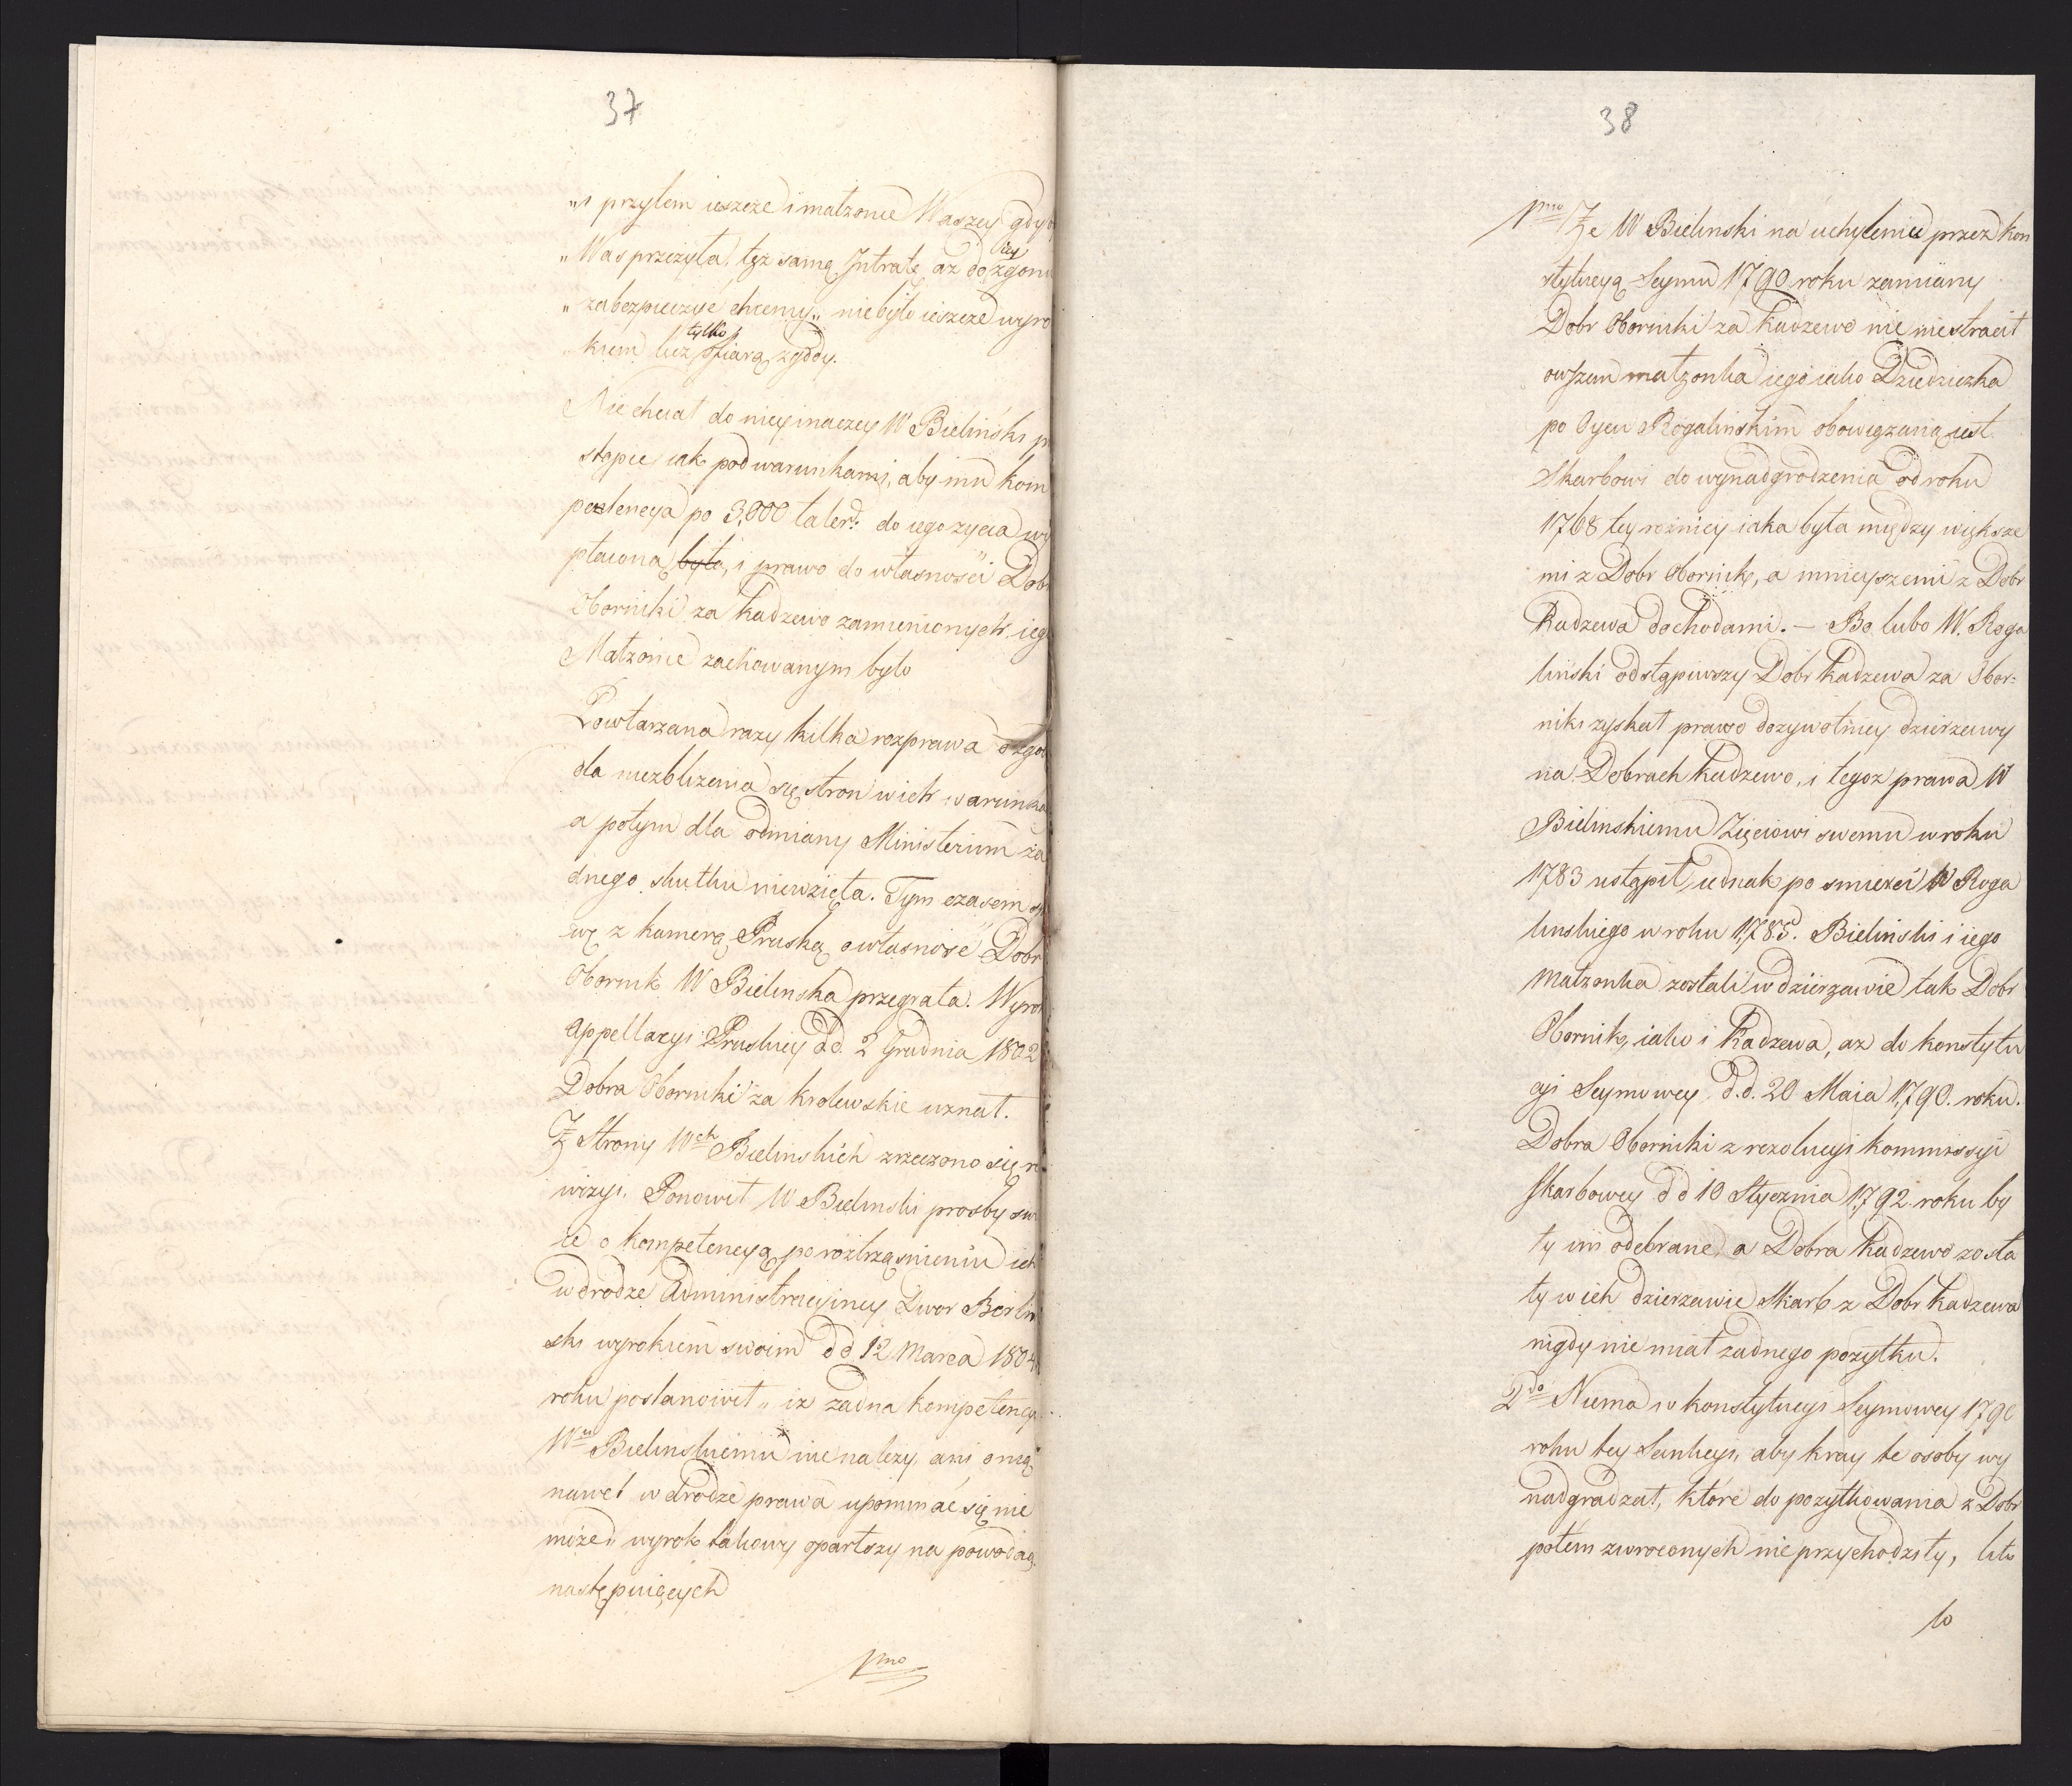 37
„i przytem ieszcze i małzonce Waszey gdyby
„Was przezyła, tęz samę Jntratę az do Jey zgonu
„zabezpieczyć chcemy„ nie było ieszcze wyro
kiem lecz tylko ofiarą zgody.
Nie chciał do niey inaczey W Bieliński p
stąpić iak pod warunkami, aby mu kom
petencya po 3,000 taler: do iego zycia wy
płacona była, i prawo do własności Dobr
Oborniki za Kadzewo zamienionych iego
Małzonce zachowanym było
Powtarzana razy kilka rozprawa o zgo
dla niezblizenia się stron w ich warunka
a potym dla odmiany Ministerium za
dnego skutku niewzięła. Tym czasem sp
wę z kamerą Pruską o własnosć Dobr
Obornik W Bielinska przegrała. Wyrok
Appellacyi Pruskiey d.d. 2 Grudnia 1802
Dobra Oborniki za krolewskie uznał.
Z Strony Wch Bielinskich zrzeczono się re
wizyi. Ponowił W Bielinski prosby swo
ie o kompetencyą po roztrząsnieniu ich
w drodze Administracyiney Dwor Berliń
ski wyrokiem swoim d d 12 Marca 1804
roku postanowił „ iz zadna kompetency
Wu Bielinskiemu nie nalezy, ani o nią
nawet w drodze prawa upominać się nie
może„ wyrok takowy oparłszy na powodach
następuiących
1mo
38
1mo Ze W Bielinski na uchyleniu przez kon
stytucyą Seymu 1790 roku zamiany
Dobr Oborniki za Kadzewo nic niestracił
owszem małzonka iego iako Dziedziczka
po Oycu Rogalinskim obowiązaną iest
Skarbowi do wynadgrodzenia od roku
1768 tey roznicy iaka była między większe
mi z Dobr Obornik, a mnieyszemi z Dobr
Kadzewa dochodami. — Bo lubo W. Roga
liński odstąpiwszy Dobr Kadzewa za Obor=
niki zyskał prawo dozywotniey dzierzawy
na Dobrach Kadzewo, i tegoz prawa W
Bielinskiemu Zięciowi swemu w roku
1783 ustąpił, iednak po smierci W Roga
linskiego w roku 1785. Bieliński i iego
Małzonka zostali w dzierzawie tak Dobr
Obornik, iako i Kadzewa, az do konstytu
cyi Seymowey d.d. 20 Maia 1790. roku.
Dobra Oborniki z rezolucyi kommissyi
Skarbowey d d 10 Stycznia 1792 roku by
ły im odebrane, a Dobra Kadzewo zosta
ły w ich dzierzawie Skarb z Dobr Kadzewa
nigdy nie miał zadnego pozytku.
2do Niema w konstytucyi Seymowey 1790
roku tey Sankcyi, aby kray te osoby wy
nadgradzał, ktore do pozytkowania z Dobr
potem zwroconych nie przychodziły, lubo